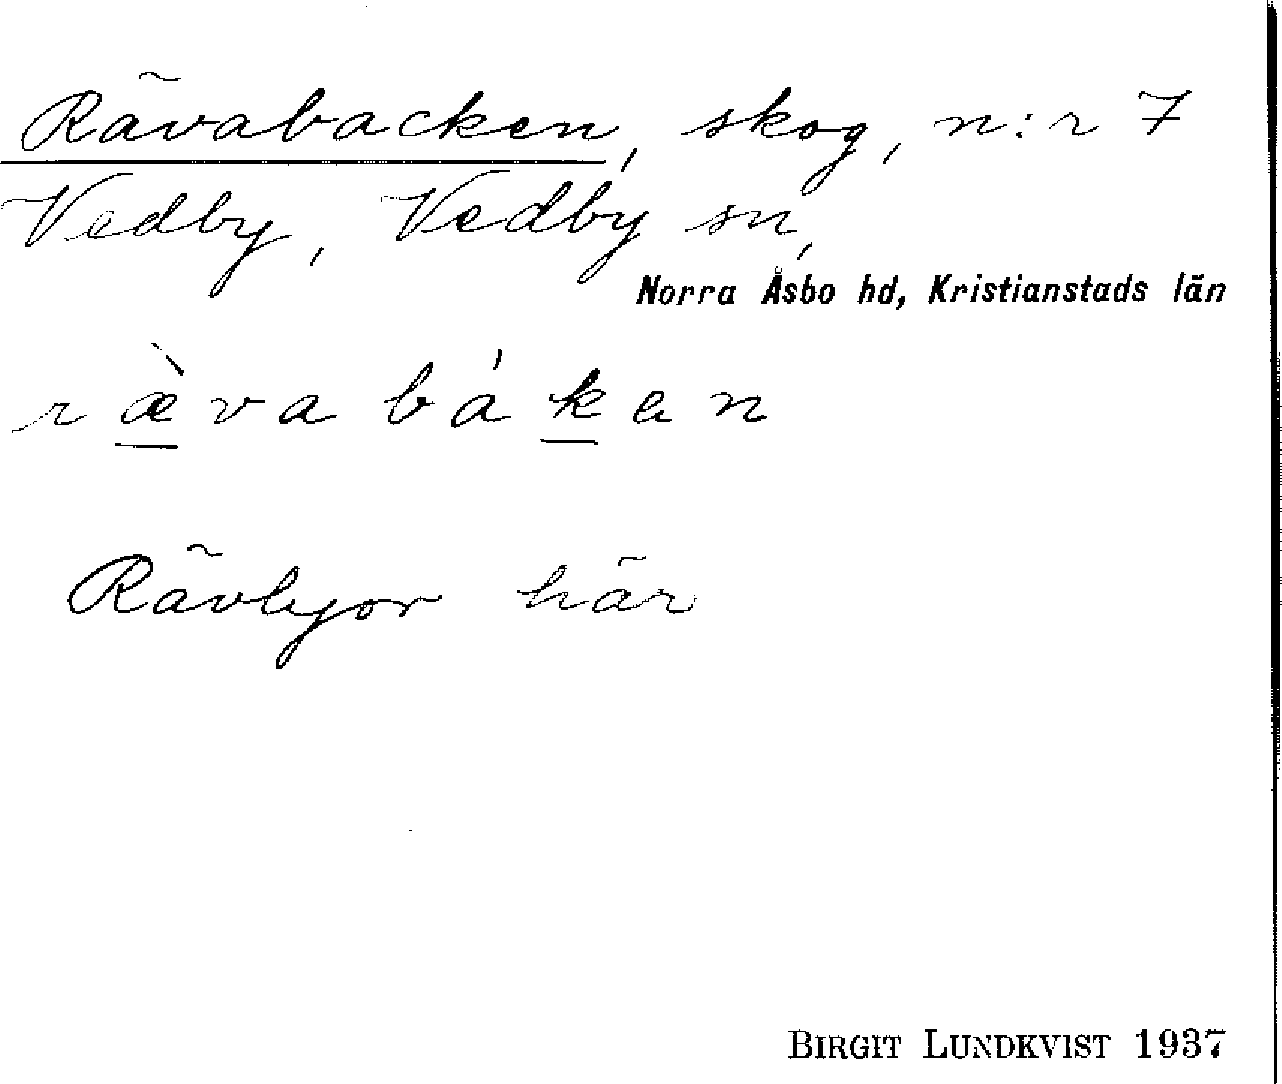 Rävabacken, skog, n:r 7
Vedby, Vedby sn,
Norra Åsbo hd, Kristianstads län
r æ̀ v a b á k e n
Rävlyor här
BIRGIT LUNDKVIST 1937